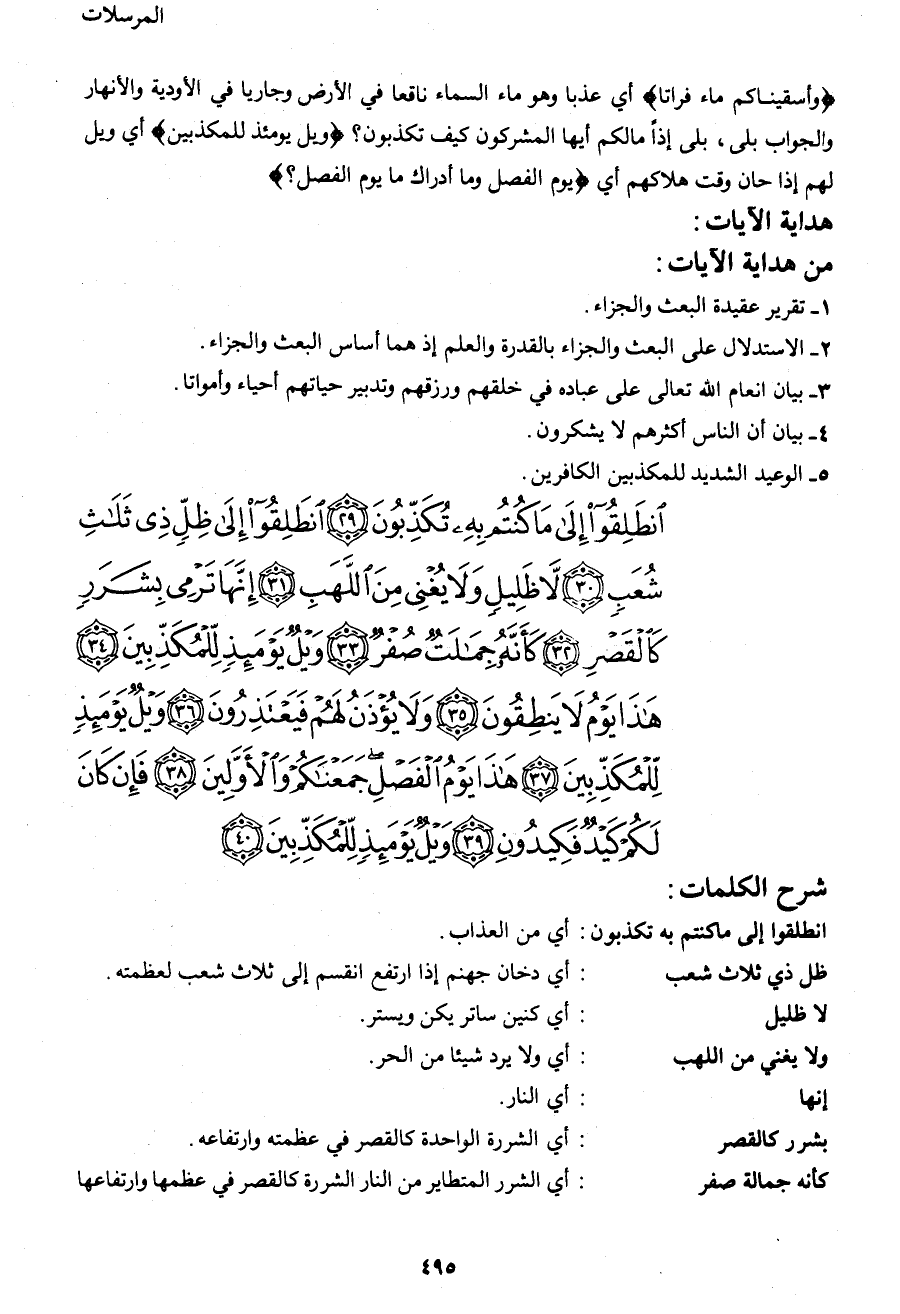 المرسلات
﴿وأسقيناكم ماء فراتا﴾ أي عذبا وهو ماء السماء ناقعا في الأرض وجاريا في الأودية والأنهار
والجواب بلى ، بلى إذاً مالكم أيها المشركون كيف تكذبون؟ ﴿ويل يومئذ للمكذبين﴾ أي ويل
لهم إذا حان وقت هلاكهم أي ﴿يوم الفصل وما أدراك ما يوم الفصل؟﴾
هداية الآيات :
من هداية الآيات :
١ـ تقرير عقيدة البعث والجزاء .
٢ـ الاستدلال على البعث والجزاء بالقدرة والعلم إذ هما أساس البعث والجزاء .
٣ـ بيان انعام الله تعالى على عباده في خلقهم ورزقهم وتدبير حياتهم أحياء وأمواتا .
٤ـ بيان أن الناس أكثرهم لا يشكرون .
٥ـ الوعيد الشديد للمكذبين الكافرين .
ٱنطَلِقُوٓا۟ إِلَىٰ مَا كُنتُم بِهِۦ تُكَذِّبُونَ ٢٩ ٱنطَلِقُوٓا۟ إِلَىٰ ظِلٍّ ذِى ثَلَـٰثِ
شُعَبٍ ٣٠ لَّا ظَلِيلٍ وَلَا يُغْنِى مِنَ ٱللَّهَبِ ٣١ إِنَّهَا تَرْمِى بِشَرَرٍ
كَٱلْقَصْرِ ٣٢ كَأَنَّهُۥ جِمَـٰلَتٌ صُفْرٌ ٣٣ وَيْلٌ يَوْمَئِذٍ لِّلْمُكَذِّبِينَ ٣٤
هَـٰذَا يَوْمُ لَا يَنطِقُونَ ٣٥ وَلَا يُؤْذَنُ لَهُمْ فَيَعْتَذِرُونَ ٣٦ وَيْلٌ يَوْمَئِذٍ
لِّلْمُكَذِّبِينَ ٣٧ هَـٰذَا يَوْمُ ٱلْفَصْلِ ۖ جَمَعْنَـٰكُمْ وَٱلْأَوَّلِينَ ٣٨ فَإِن كَانَ
لَكُمْ كَيْدٌ فَكِيدُونِ ٣٩ وَيْلٌ يَوْمَئِذٍ لِّلْمُكَذِّبِينَ ٤٠
شرح الكلمات :
انطلقوا إلى ماكنتم به تكذبون : أي من العذاب .
ظل ذي ثلاث شعب : أي دخان جهنم إذا ارتفع انقسم إلى ثلاث شعب لعظمته .
لا ظليل : أي كنين ساتر يكن ويستر .
ولا يغني من اللهب : أي ولا يرد شيئا من الحر .
إنها : أي النار .
بشرر كالقصر : أي الشررة الواحدة كالقصر في عظمته وارتفاعه .
كأنه جمالة صفر : أي الشرر المتطاير من النار الشررة كالقصر في عظمها وارتفاعها
٤٩٥